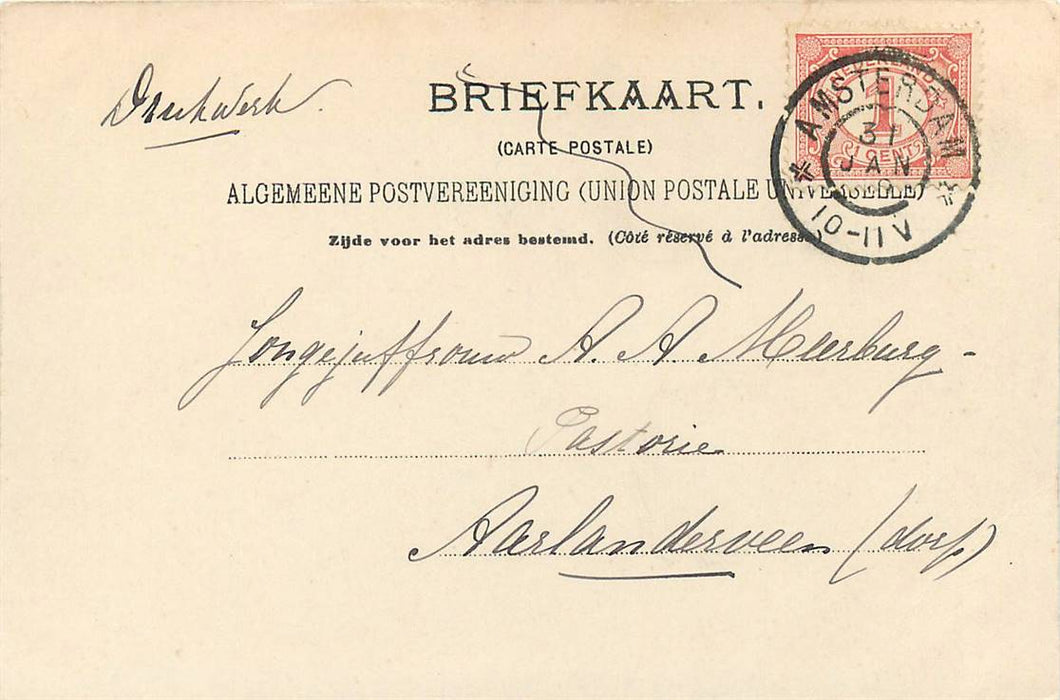 Drukwerk.
BRIEFKAART.
(CARTE POSTALE)
ALGEMEENE POSTVEREENIGING (UNION POSTALE UNIVERSELLE)
Zijde voor het adres bestemd. (Côté réservé à l'adresse)
1
1 CENT
AMSTERDAM
31
JAN
10-11 V
Jongejuffrouw A. A. Meerburg-
Pastorie
Aarlanderveen (dorp)